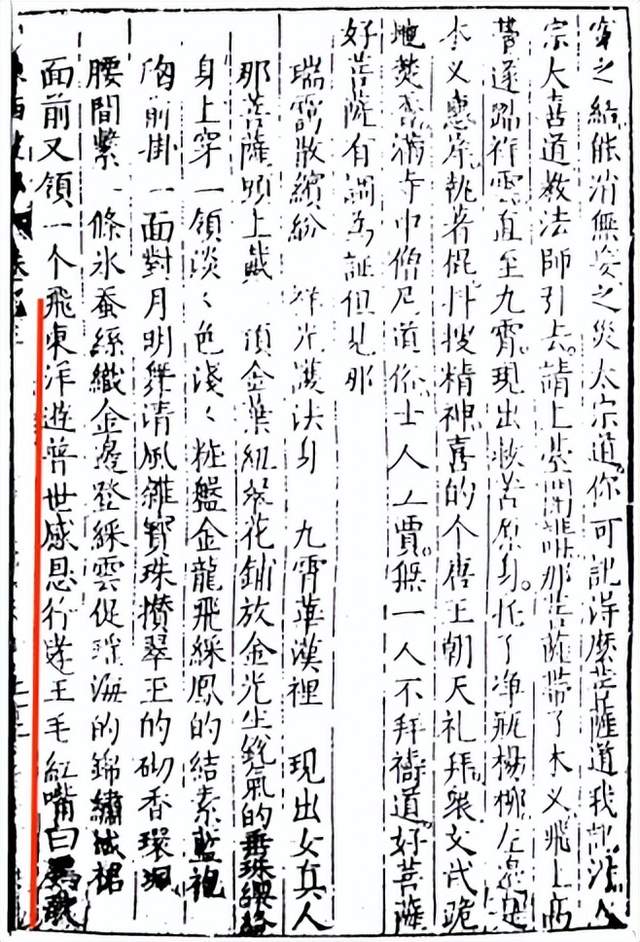 冤之結能消無妄之災太宗道你可記得麽菩薩道我記得太
宗大喜道教法師引去請上臺開講那菩薩帶了木叉飛上高
臺遂踏祥雲直至九霄現出救苦原身托了淨瓶楊柳左邊是
木叉惠岸執著棍抖搜精神喜的个唐王朝天礼拜眾文武跪
地焚香滿寺中僧尼道俗士人工賈無一人不拜禱道好菩薩
好菩薩有詞為証但見那
瑞靄散繽紛 祥光護法身 九霄華漢裡 現出女真人
那菩薩頭上戴一頂金葉紐翠花鋪放金光生銳氣的垂珠纓絡
身上穿一領淡〻色淺〻粧盤金龍飛綵鳳的結素藍袍
胸前掛一面對月明舞清風雜寶珠攢翠玉的砌香環珮
腰間繫一條氷蚕絲織金邊登綵雲促瑤海的錦繡絨裙
面前又領一个飛東洋遊普世感恩行孝王毛紅嘴白鸚歌